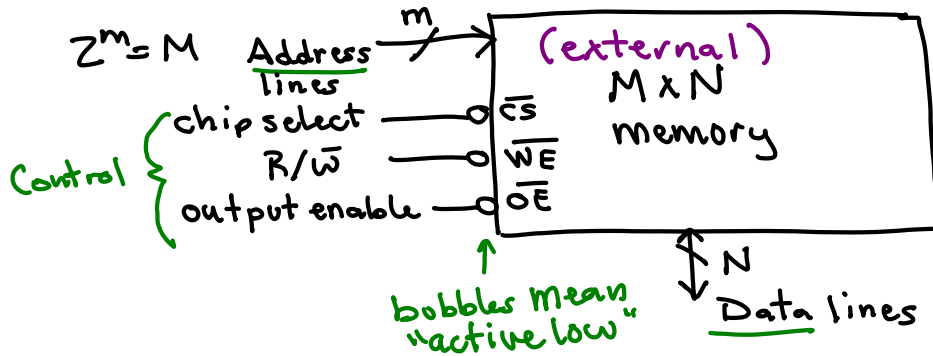 2ᵐ = M
Address
lines
m
(external)
M x N
memory
Control
chip select
C̅S̅
R/W̅
W̅E̅
output enable
O̅E̅
bubbles mean
"active low"
N
Data lines